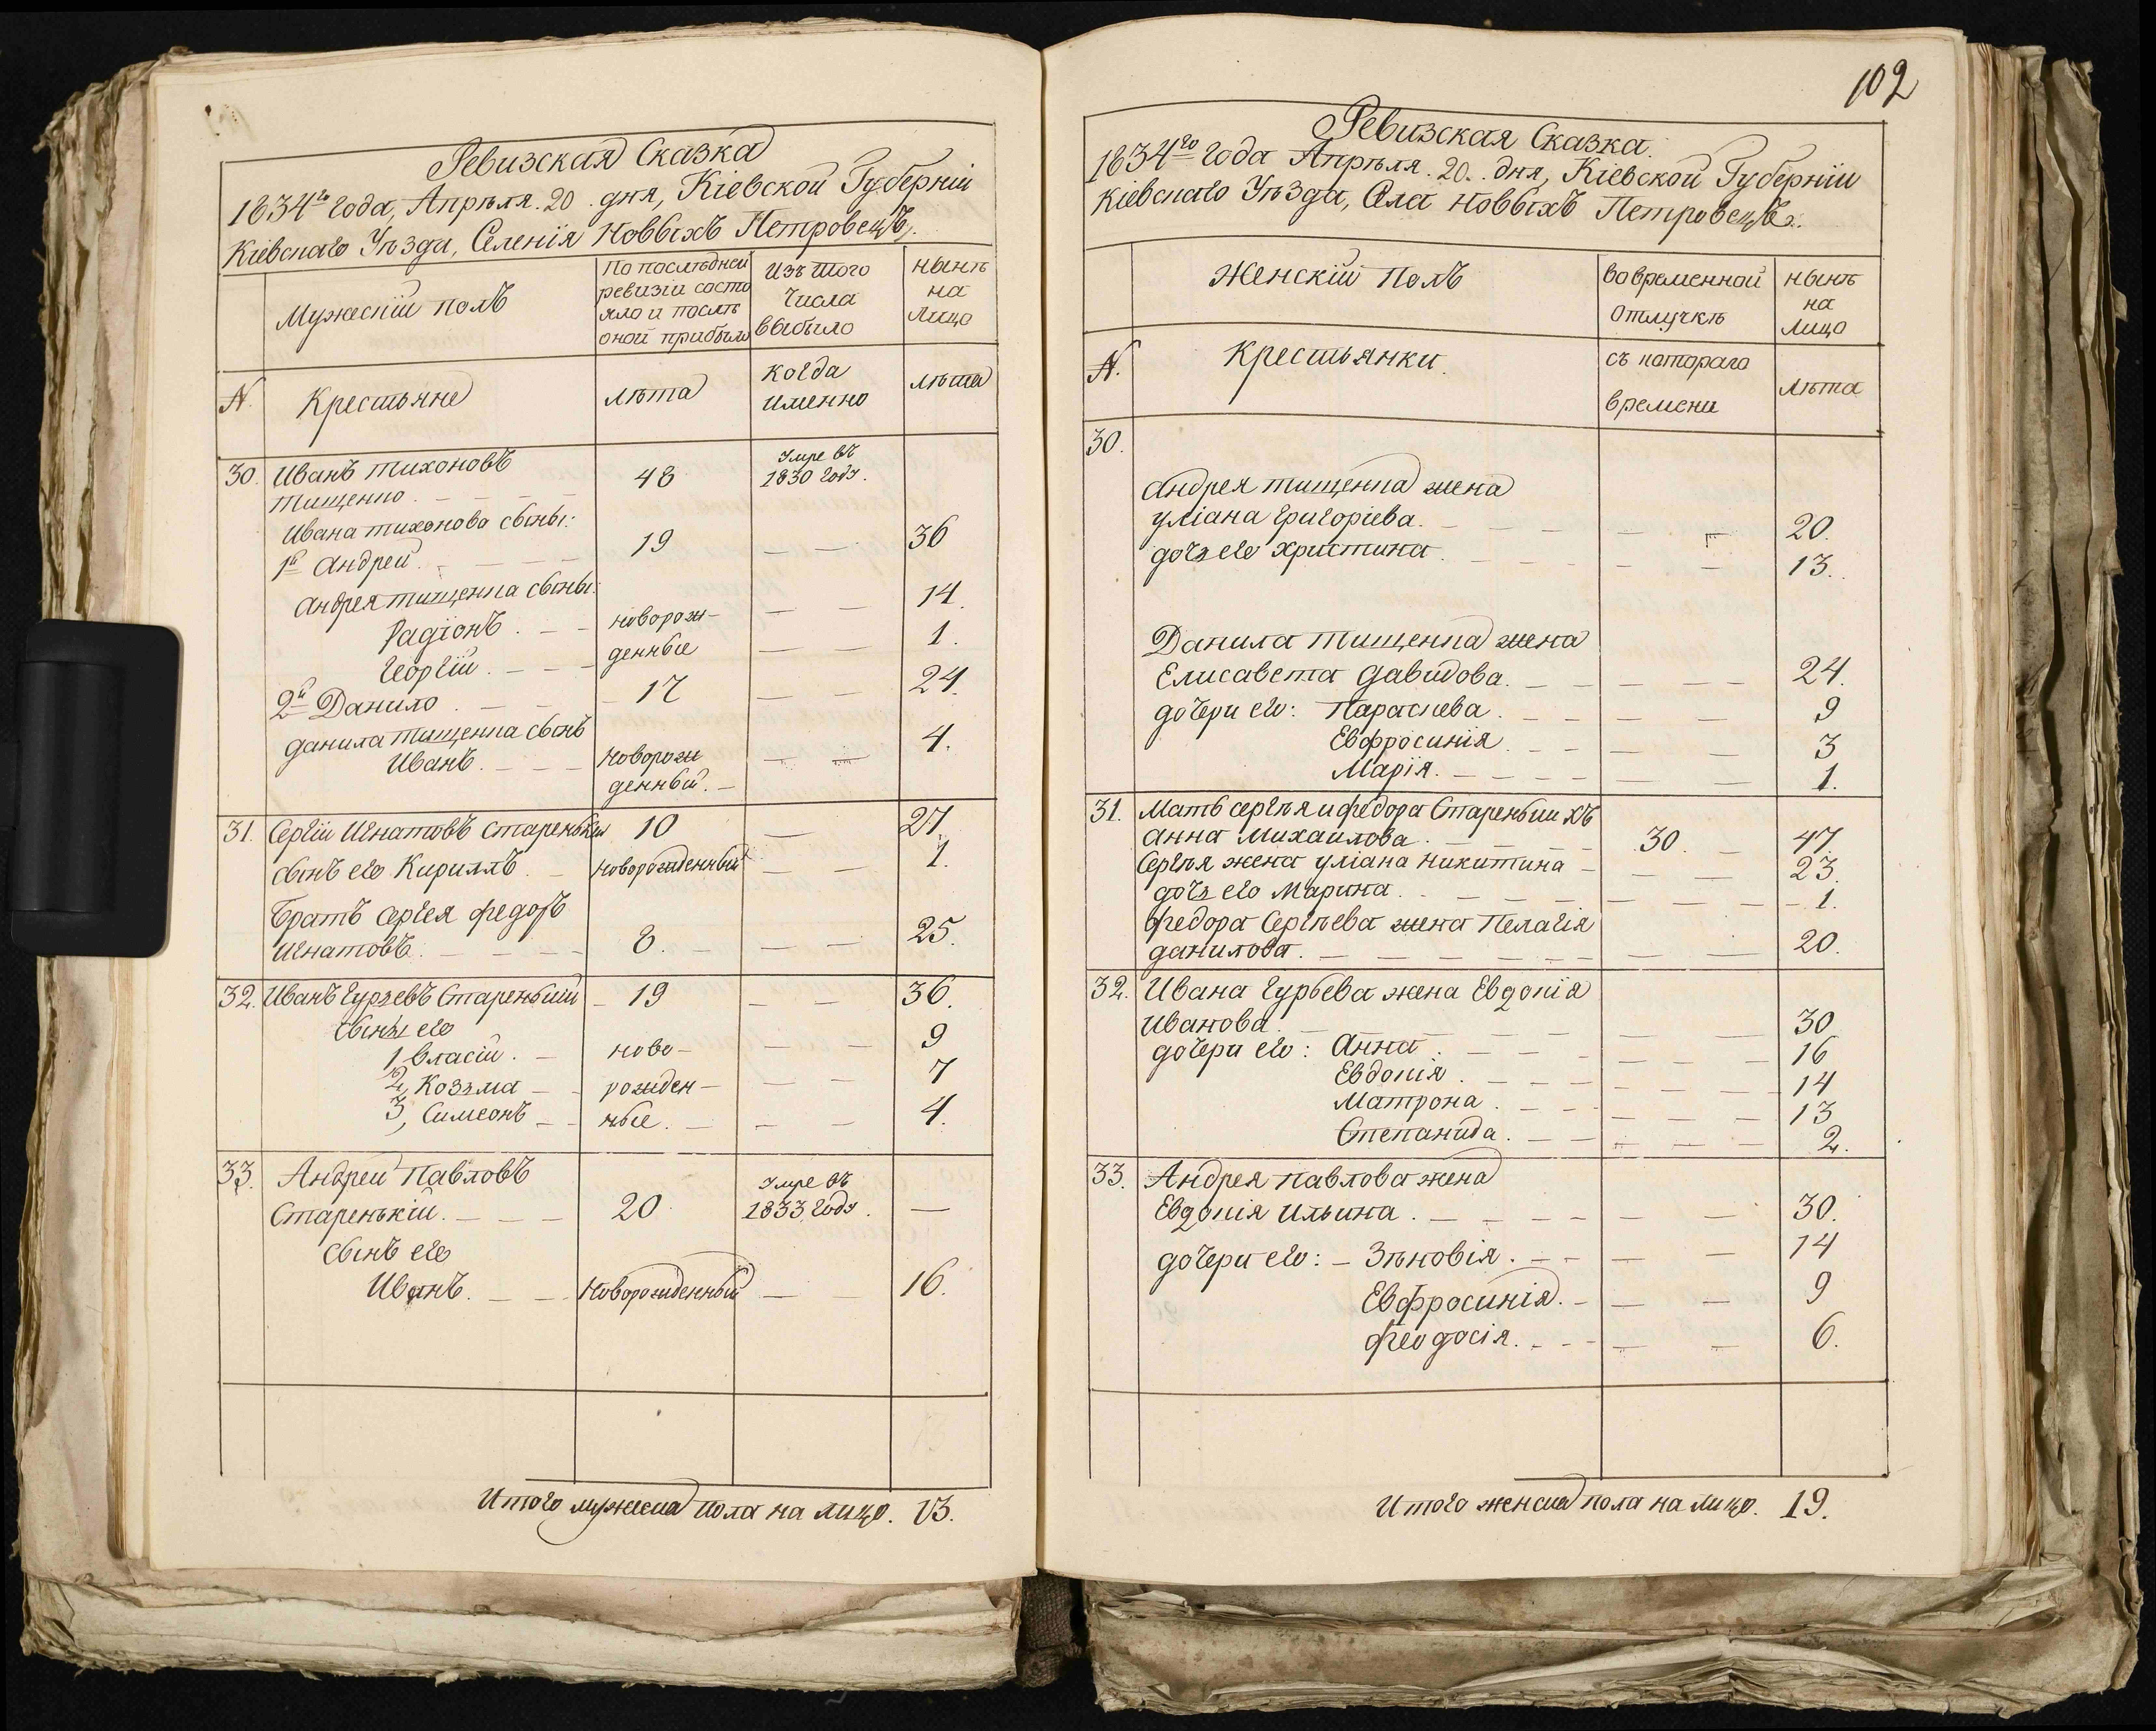 Ревизская Сказка
1834го года, Апрѣля. 20. дня, Кіевской Губерніи
Кіевскаго Уѣзда, Селенія Новыхъ Петровецъ.
Мужескій полъ
По послѣдней
ревизіи состо
яло и послѣ
оной прибыло
Изъ того
числа
выбыло
нынѣ
на
лицо
N. Крестьяне
лѣта
когда
именно
лѣта
30. Иванъ Тихоновъ
Тищенко. 48 умре въ
1830 году.
Ивана Тихонова сыны:
1й Андрей. 19 36
Андрея Тищенка сыны:
Радіонъ. новорож- 14.
Георгій. денные 1.
2й Данило. 17 24.
Данила Тищенка сынъ
Иванъ. новорож 4.
денный.
31. Сергій Игнатовъ Старенькій 10 27.
сынъ его Кириллъ. новорожденный 1.
Братъ Сергея Федоръ
Игнатовъ. 8. 25.
32. Иванъ Гурьевъ Старенький 19 36.
сыны его
1 Власій. ново- 9
2, Козьма рожден- 7
3, Симеонъ ные. 4.
33. Андрей Павловъ
Старенькій. 20 умре въ
1833 году.
сынъ его
Иванъ. Новорожденный 16.
Итого мужеска пола на лицо. 13.
102
Ревизская Сказка.
1834го года Апрѣля. 20. дня, Кіевской Губерніи
Кіевскаго Уѣзда, Села Новыхъ Петровецъ.
Женскій полъ
во временной
отлучкѣ
нынѣ
на
лицо
N. Крестьянки.
съ котораго
времени
лѣта
30.
Андрея Тищенка жена
Уліана Григоріева. 20.
дочь его Христина. 13.
Данила Тищенка жена
Елисавета Давидова. 24.
дочери его: Параскева. 9
Евфросинія. 3
Марія. 1.
31. Мать Сергѣя и Федора Стареньшихъ
Анна Михаилова. 30. 47.
Сергѣя жена Уліана Никитина 23.
дочь его Марина. 1.
Федора Сергѣева жена Пелагія
Данилова. 20.
32. Ивана Гурьева жена Евдокія
Иванова. 30
дочери его: Анна. 16
Евдокія. 14
Матрона. 13
Степанида. 2.
33. Андрея Павлова жена
Евдокія Ильина. 30.
дочери его: Зѣновія. 14
Евфросинія. 9
Феодосія. 6.
Итого женска пола на лицо. 19.